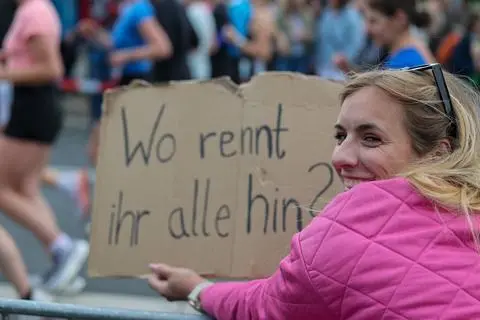 Wo rennt
ihr alle hin?